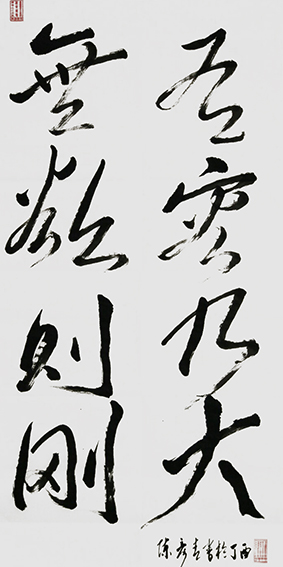 有容乃大
無欲则刚
陈 青書於丁酉